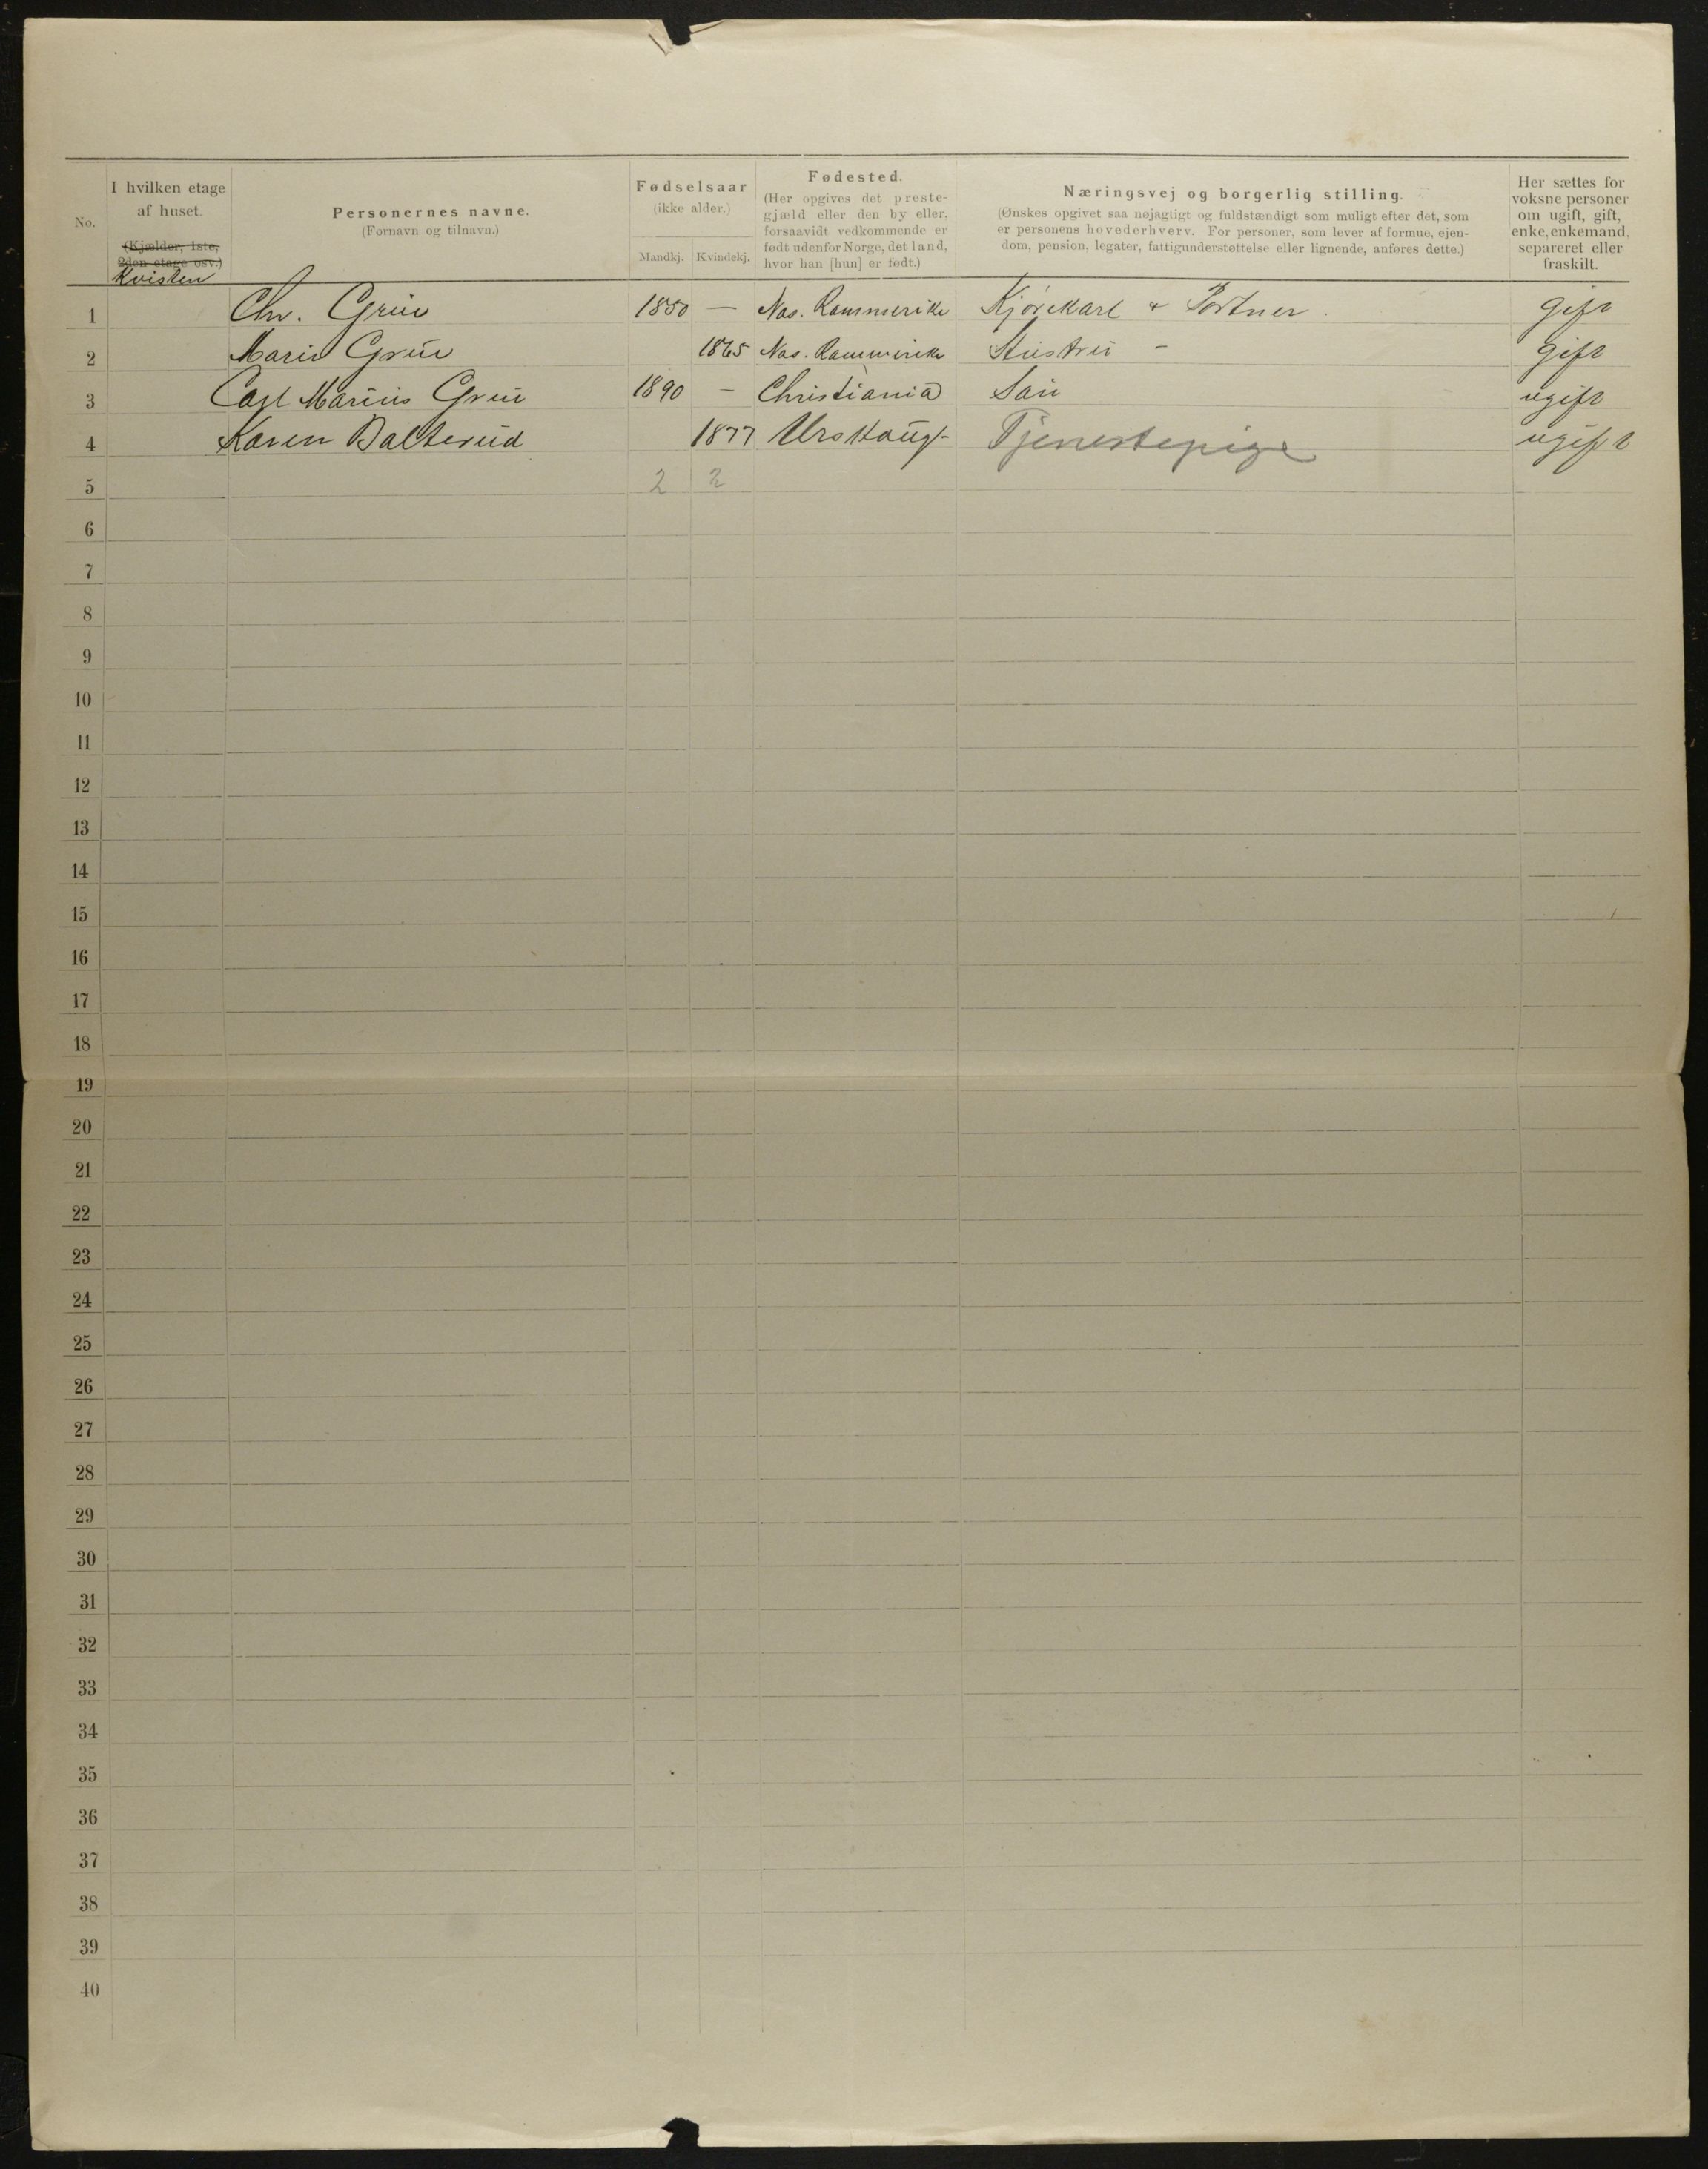 No.
I hvilken etage
af huset.
(Kjælder, 1ste,
2den etage osv.)
Kvisten
Personernes navne.
(Fornavn og tilnavn.)
Fødselsaar
(ikke alder.)
Mandkj. Kvindekj.
Fødested.
(Her opgives det preste-
gjæld eller den by eller,
forsaavidt vedkommende er
født udenfor Norge, det land,
hvor han [hun] er født.)
Næringsvej og borgerlig stilling.
(Ønskes opgivet saa nøjagtigt og fuldstændigt som muligt efter det, som
er personens hovederhverv. For personer, som lever af formue, ejen-
dom, pension, legater, fattigunderstøttelse eller lignende, anføres dette.)
Her sættes for
voksne personer
om ugift, gift,
enke, enkemand,
separeret eller
fraskilt.
1 Chr. Grüe 1850 — Nas. Rommerike Kjørekarl & Portner. gift
2 Marie Grüe 1865 Nas. Rommerike Hüstrü - gift
3 Carl Mariüs Grüe 1890 — Christiania Søn ugift
4 Karen Balterüd 1877 Urskoüg - Tjenestepige ugift
5 2 2
6
7
8
9
10
11
12
13
14
15
16
17
18
19
20
21
22
23
24
25
26
27
28
29
30
31
32
33
34
35
36
37
38
39
40